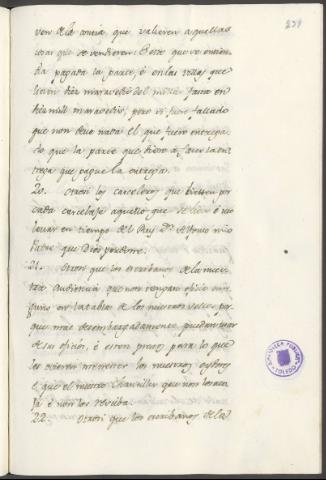 239
ven de la contia que valieren aquellas
cosas que se vendieren: Esto que se entien-
da pagada la parte, è en las villas que
lieven diez maravedis del millar fasta en
diez mill maravedis, pero si fuere fallado
que non deve nada el que fuere entrega-
do, que la parte que hiciere à facer la en-
trega que pague la entrega.
20. Otrosi los carceleros que lieven por
cada carcelaje aquello que se devia è no
levar en tiempo del Rey Dn. Alfonso mio
Padre que Dios perdone.
21. Otrosi que los escribanos de la nues-
tra audiencia que non tengan oficio nin-
guno en la tabla de los nuestros sellos por-
que mas desembargadamente puedan usar
de su oficio, è esten prestos para lo que
les dixeren los nuestros oydores
è que el nuestro Chanciller que non los aco-
ja è non los resciba.
22. Otrosi que los escribanos de la
BIBLIOTECA PUBLICA
TOLEDO